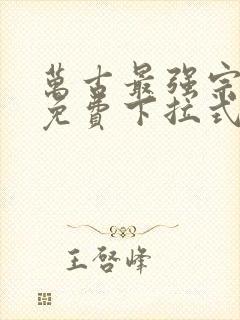 萬古最强宗
免費下拉式
王啓峰